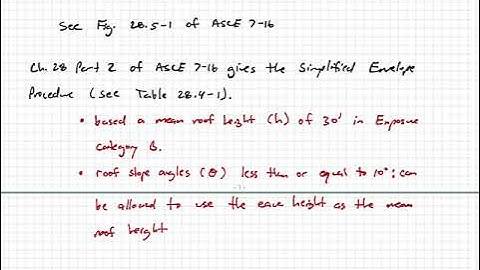 See Fig. 28.5-1 of ASCE 7-16
Ch. 28 Part 2 of ASCE 7-16 gives the Simplified Envelope
Procedure (see Table 28.4-1).
• based a mean roof height (h) of 30' in Exposure
category B.
• roof slope angles (θ) less than or equal to 10°; can
be allowed to use the eave height as the mean
roof height